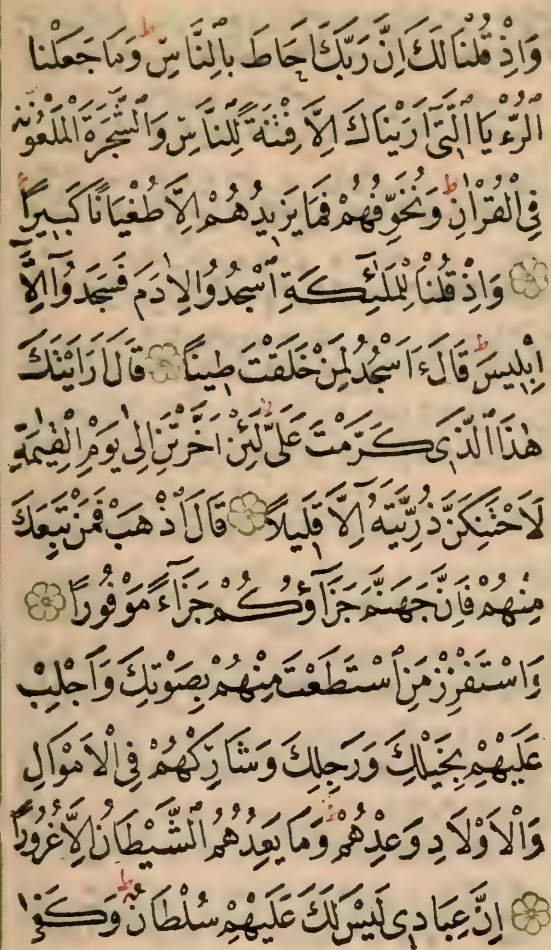 وَاِذْ قُلْنَا لَكَ اِنَّ رَبَّكَ اَحَاطَ بِالنَّاسِۜ وَمَا جَعَلْنَا
الرُّءْيَا الَّتٖٓي اَرَيْنَاكَ اِلَّا فِتْنَةً لِلنَّاسِ وَالشَّجَرَةَ الْمَلْعُونَةَ
فِي الْقُرْاٰنِ ط وَنُخَوِّفُهُمْ فَمَا يَزٖيدُهُمْ اِلَّا طُغْيَانًا كَبٖيرًا
وَاِذْ قُلْنَا لِلْمَلٰٓئِكَةِ اسْجُدُوا لِاٰدَمَ فَسَجَدُٓوا اِلَّٓا
اِبْلٖيسَ ط قَالَ ءَاَسْجُدُ لِمَنْ خَلَقْتَ طٖينًا قَالَ اَرَاَيْتَكَ
هٰذَا الَّذٖي كَرَّمْتَ عَلَيَّ لَئِنْ اَخَّرْتَنِ اِلٰى يَوْمِ الْقِيٰمَةِ
لَاَحْتَنِكَنَّ ذُرِّيَّتَهُ اِلَّا قَلٖيلًا قَالَ اذْهَبْ فَمَنْ تَبِعَكَ
مِنْهُمْ فَاِنَّ جَهَنَّمَ جَزَٓاؤُكُمْ جَزَٓاءً مَوْفُورًا
وَاسْتَفْزِزْ مَنِ اسْتَطَعْتَ مِنْهُمْ بِصَوْتِكَ وَاَجْلِبْ
عَلَيْهِمْ بِخَيْلِكَ وَرَجِلِكَ وَشَارِكْهُمْ فِي الْاَمْوَالِ
وَالْاَوْلَادِ وَعِدْهُمْ ط وَمَا يَعِدُهُمُ الشَّيْطَانُ اِلَّا غُرُورًا
اِنَّ عِبَادٖي لَيْسَ لَكَ عَلَيْهِمْ سُلْطَانٌ ط وَكَفٰى